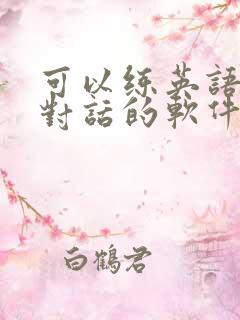 可以练英語
對話的軟件
白鶴君